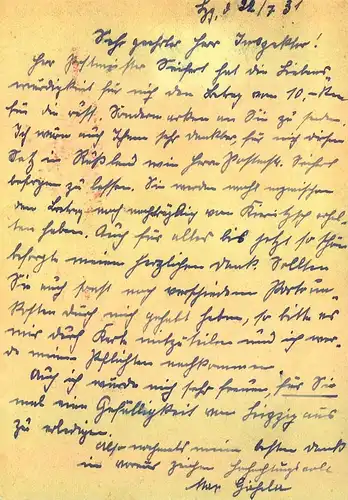 Lpzg, d 22/7 31
Sehr geehrter Herr Inspektor!
Herr Postmeister Seifert hat die Liebens-
würdigkeit für mich den Betrag von 10.- Rm
für die russ. Sondermarken an Sie zu senden.
Ich wäre auch Ihnen sehr dankbar, für mich diesen
Satz in Rußland wie Herrn Postmstr. Seifert
besorgen zu lassen. Sie werden wohl inzwischen
den Betrag noch nachträglich von Kieritzsch erhal-
ten haben. Auch für alles bis jetzt so schön
besorgte meinen herzlichen Dank. Sollten
Sie auch sonst noch verschiedene Portoun-
kosten durch mich gehabt haben, so bitte es
mir durch Karte mitzuteilen und ich wer-
de meinen Pflichten nachkommen.
Auch ich würde mich sehr freuen, für Sie
mal eine Gefälligkeit von Leipzig aus
zu erledigen.
Also nochmals meinen besten Dank
im voraus zeichnet hochachtungsvoll
Max